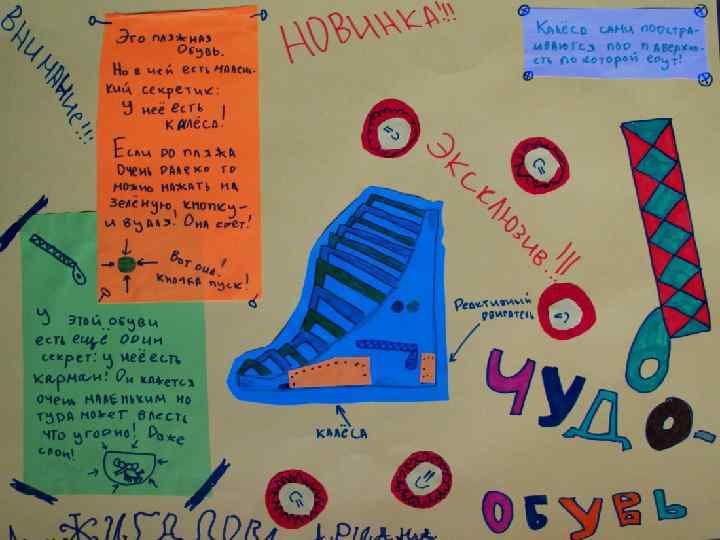 ВНИМАНИЕ!!!
Это пляжная
обувь.
Но в ней есть мален-
кий секретик:
у неё есть
калёса!
Если до пляжа
очень далеко то
можно нажать на
зелёную кнопку-
и вуаля! Она едет!
Вот она!
кнопка пуск!
У этой обуви
есть ещё один
секрет: у неё есть
карман! Он кажется
очень маленьким но
туда может влесть
что угодно! Даже
слон!
НОВИНКА!!!
Калёса сами подстра-
иваются под паверхно-
сть по которой едут!
ЭКСКЛЮЗИВ...!!!
Реактивный
двигатель
калёса
ЧУДО-
ОБУВЬ